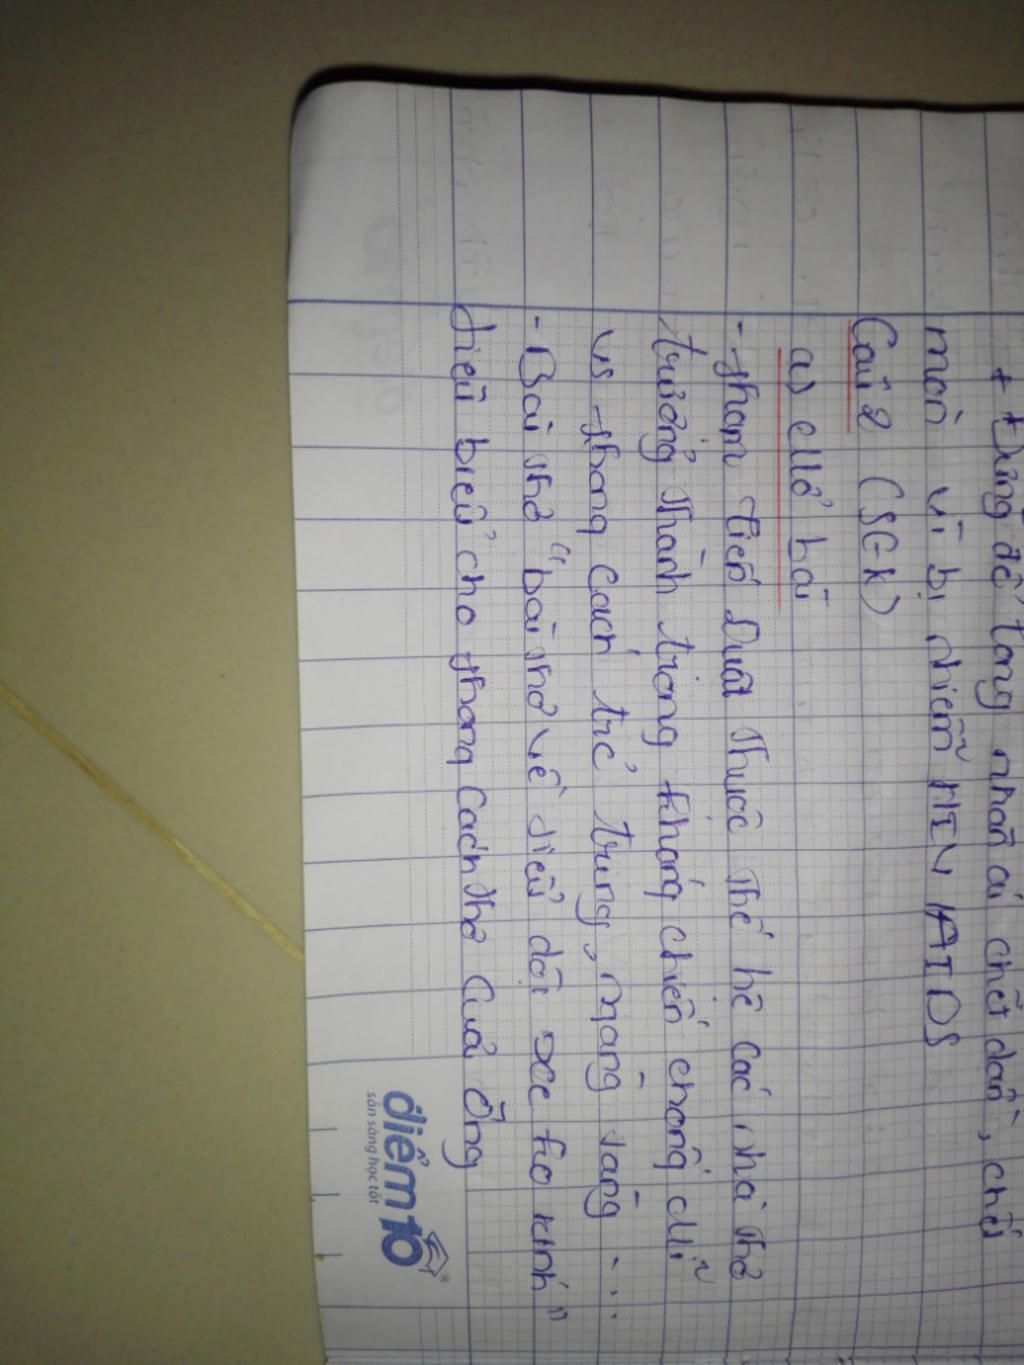 + Đừng để tong nhân ái chết dần, chết
mòn vì bị nhiễm HIV/AIDS
Câu 2 (SGK)
a) Mở bài
- Phạm Tiến Duật Thuộc Thế hệ các nhà Thơ
trưởng Thành trong kháng chiến chống Mĩ
vs phong cách trẻ trung, ngang tàng ...
- Bài Thơ "bài Thơ về tiểu đội xe ko kính"
tiêu biểu cho phong cách Thơ của Ông
điểm 10
sẵn sàng học tốt